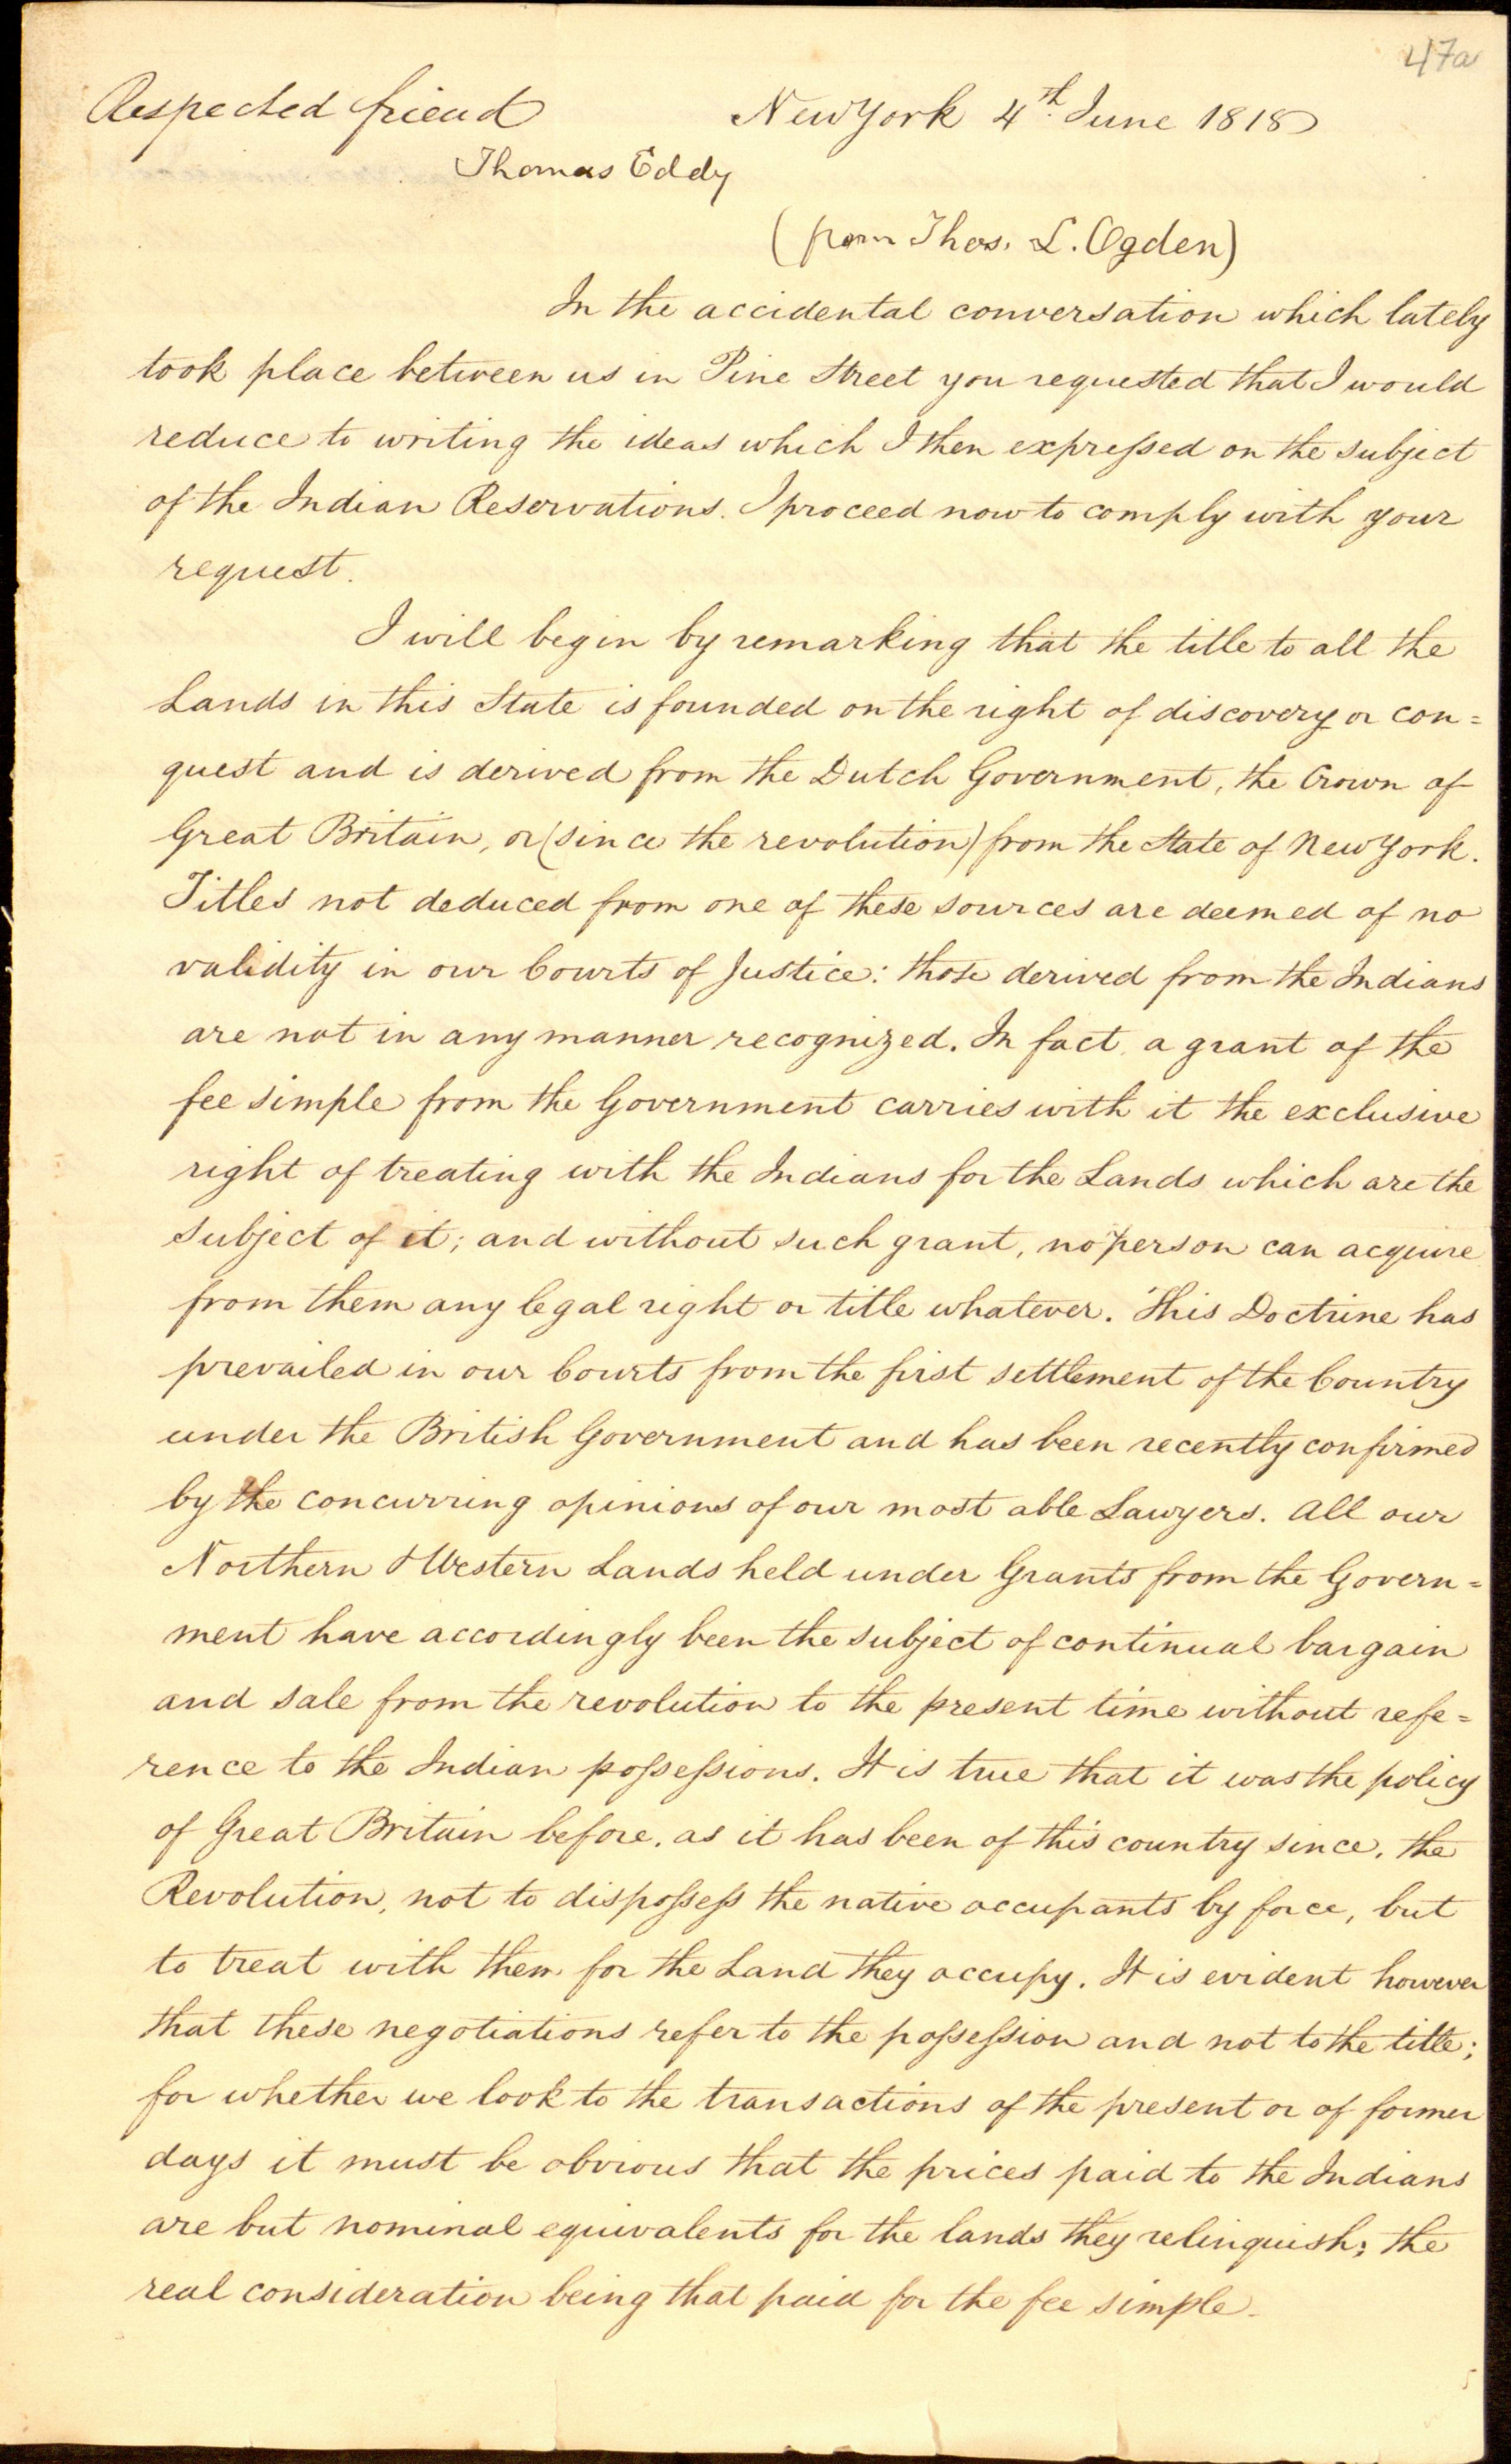 47a
Respected friend New York 4th. June 1818
Thomas Eddy
(from Thos. L. Ogden)
In the accidental conversation which lately
took place between us in Pine Street you requested that I would
reduce to writing the ideas which I then expressed on the subject
of the Indian Reservations. I proceed now to comply with your
request.
I will begin by remarking that the title to all the
Lands in this State is founded on the right of discovery or con=
quest and is derived from the Dutch Government, the Crown of
Great Britain, or (since the revolution) from the State of New York.
Titles not deduced from one of these sources are deemed of no
validity in our Courts of Justice: those derived from the Indians
are not in any manner recognized. In fact a grant of the
fee simple from the Government carries with it the exclusive
right of treating with the Indians for the Lands which are the
subject of it; and without such grant, no person can acquire
from them any legal right or title whatever. This Doctrine has
prevailed in our Courts from the first settlement of the Country
under the British Government and has been recently confirmed
by the concurring opinions of our most able Lawyers. All our
Northern & Western Lands held under Grants from the Govern=
ment have accordingly been the subject of continual bargain
and sale from the revolution to the present time without refe=
rence to the Indian possessions. It is true that it was the policy
of Great Britain before, as it has been of this country since, the
Revolution, not to dispossess the native occupants by force, but
to treat with them for the Land they occupy. It is evident however
that these negotiations refer to the possession and not to the title;
for whether we look to the transactions of the present or of former
days it must be obvious that the prices paid to the Indians
are but nominal equivalents for the lands they relinquish; the
real consideration being that paid for the fee simple.